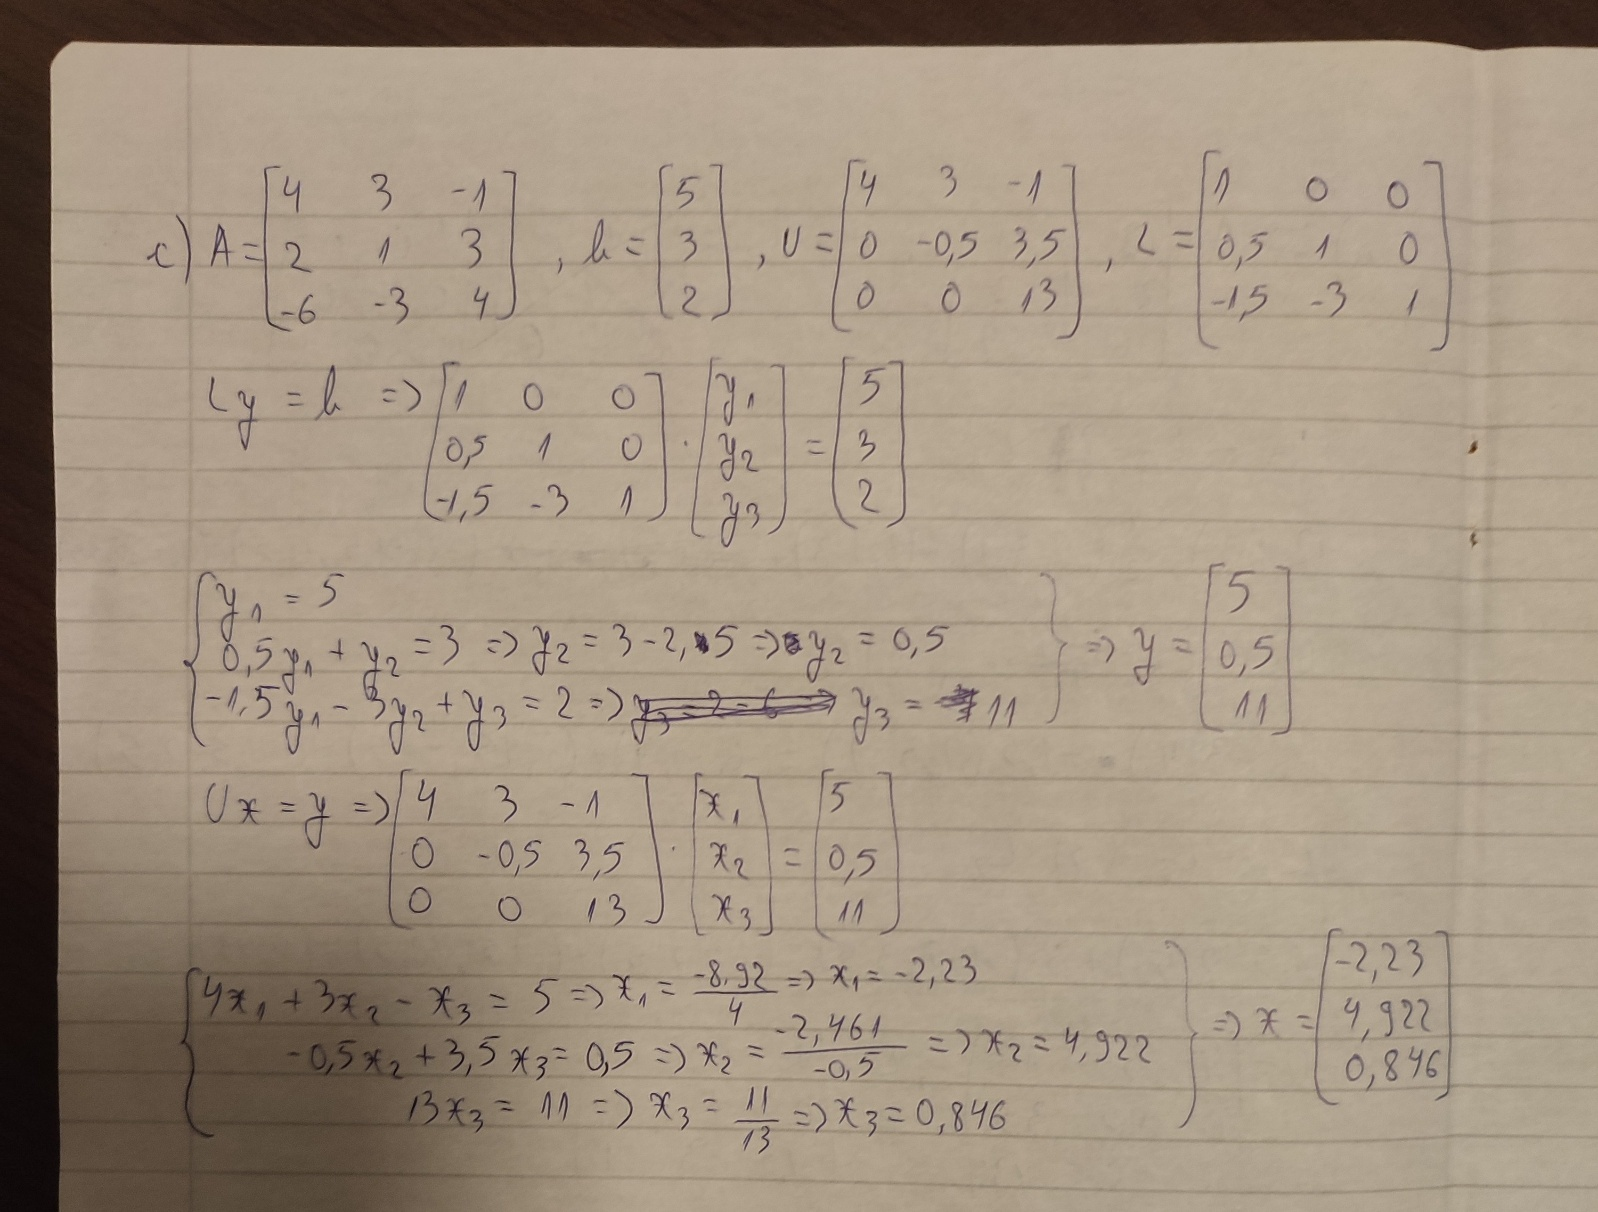 c) A = [4 3 -1; 2 1 3; -6 -3 4], b = [5; 3; 2], U = [4 3 -1; 0 -0,5 3,5; 0 0 13], L = [1 0 0; 0,5 1 0; -1,5 -3 1]
Ly = b => [1 0 0; 0,5 1 0; -1,5 -3 1] · [y₁; y₂; y₃] = [5; 3; 2]
y₁ = 5
0,5y₁ + y₂ = 3 => y₂ = 3 - 2,5 => y₂ = 0,5
-1,5y₁ - 3y₂ + y₃ = 2 => y₃ = 11
=> y = [5; 0,5; 11]
Ux = y => [4 3 -1; 0 -0,5 3,5; 0 0 13] · [x₁; x₂; x₃] = [5; 0,5; 11]
4x₁ + 3x₂ - x₃ = 5 => x₁ = -8,92/4 => x₁ = -2,23
-0,5x₂ + 3,5x₃ = 0,5 => x₂ = -2,461/-0,5 => x₂ = 4,922
13x₃ = 11 => x₃ = 11/13 => x₃ = 0,846
=> x = [-2,23; 4,922; 0,846]